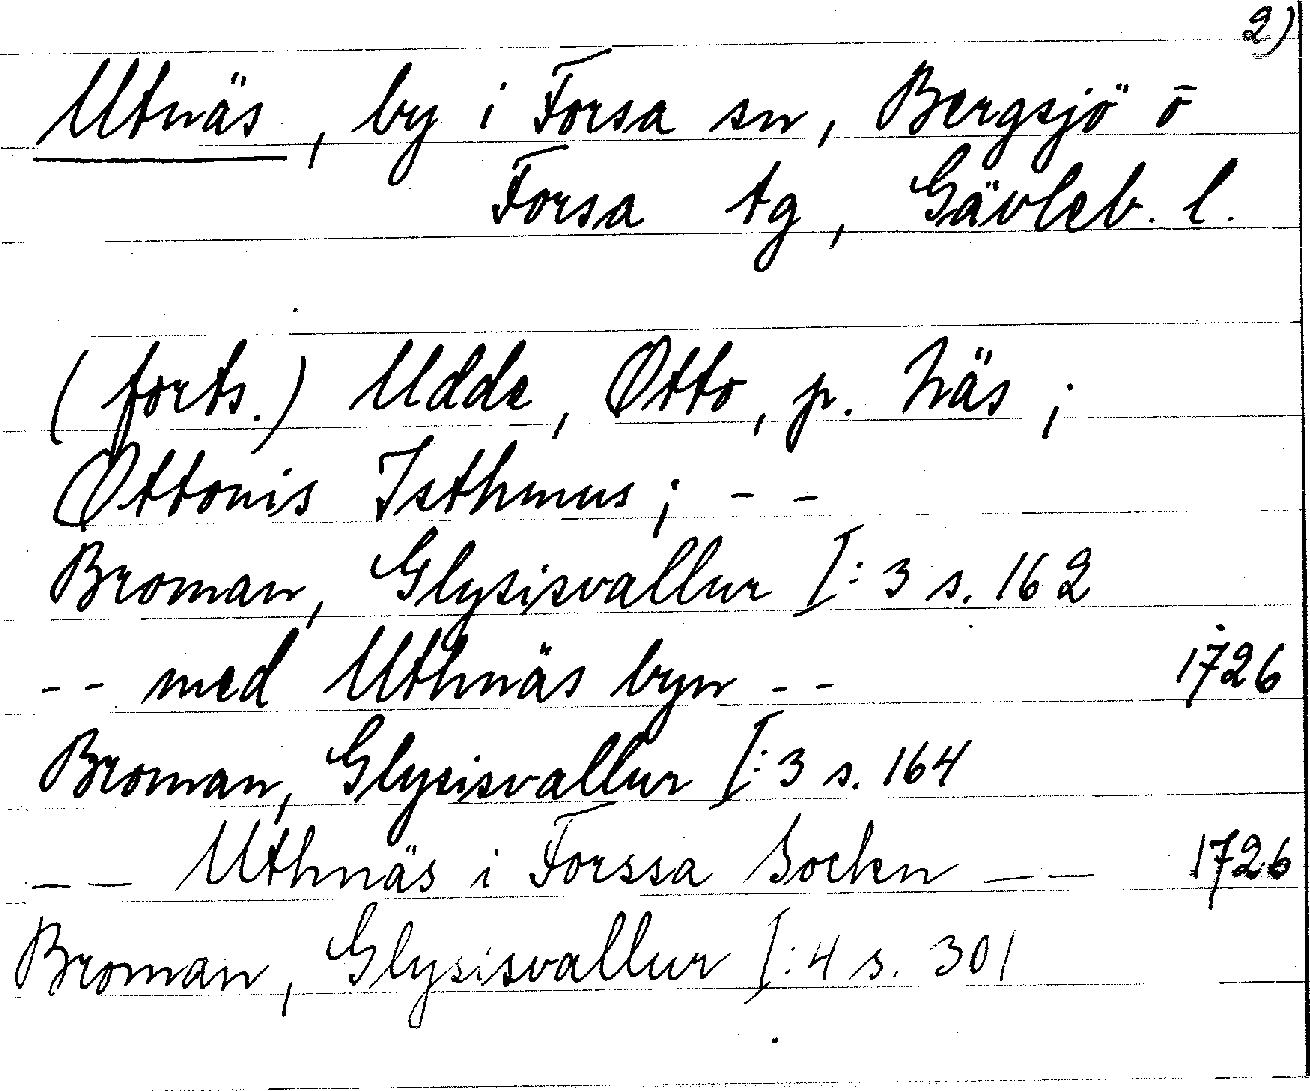 2)
Utnäs, by i Forsa sn, Bergsjö o
Forsa tg, Gävleb. l.
(forts.) Udde, Otto, p. Näs;
Ottonis Isthmus; - -
Broman, Glysisvallur I:3 s. 162
- - med Uthnäs byn - - 1726
Broman, Glysisvallur I:3 s. 164
- - Uthnäs i Forssa Sockn - - 1726
Broman, Glysisvallur I:4 s. 301